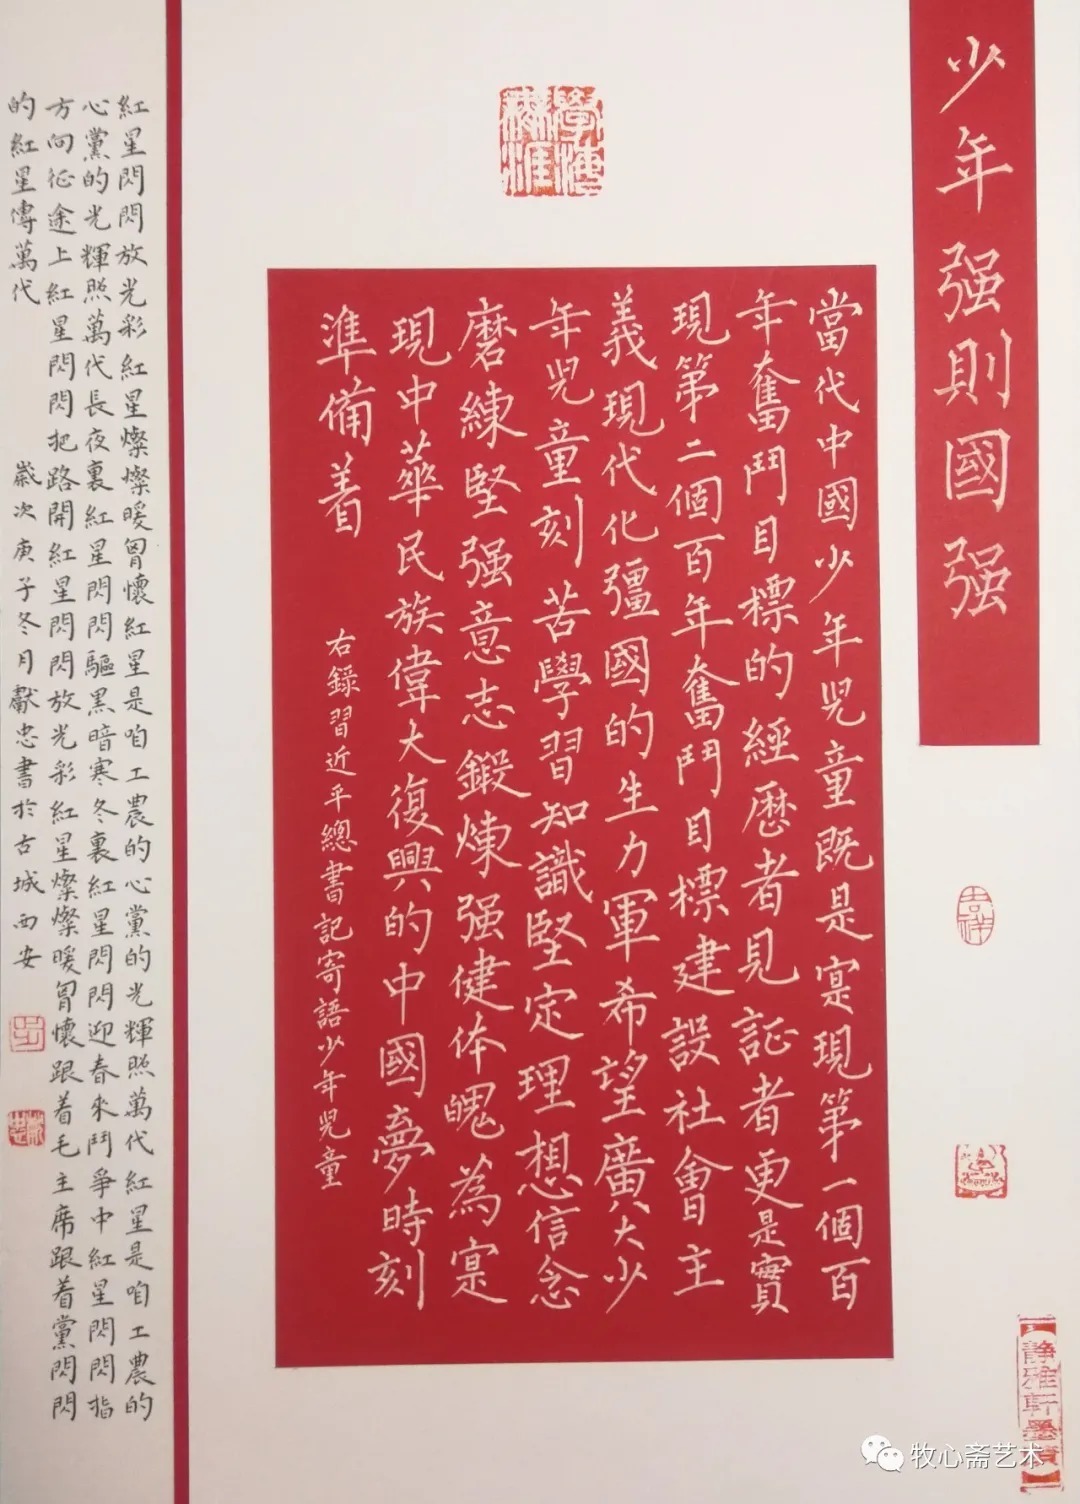 少年强則國强
學海無涯
當代中國少年兒童既是寔現第一個百
年奮鬥目標的經歷者見証者更是實
現第二個百年奮鬥目標建設社會主
義現代化彊國的生力軍希望廣大少
年兒童刻苦學習知識堅定理想信念
磨練堅强意志鍛煉强健体魄為寔
現中華民族偉大復興的中國夢時刻
準備着
右錄習近平總書記寄語少年兒童
紅星閃閃放光彩紅星燦燦暖胷懷紅星是咱工農的心黨的光輝照萬代紅星是咱工農的
心黨的光輝照萬代長夜裏紅星閃閃驅黑暗寒冬裏紅星閃閃迎春來鬥爭中紅星閃閃指
方向征途上紅星閃閃把路開紅星閃閃放光彩紅星燦燦暖胷懷跟着毛主席跟着黨閃閃
的紅星傳萬代
歲次庚子冬月獻忠書於古城西安
吉祥
静雅軒墨寶
牧心斋艺术